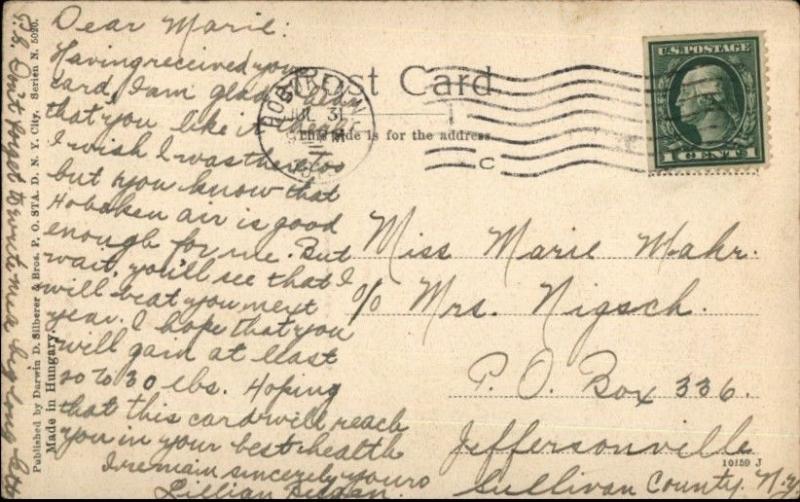 Dear Marie:
Having received your
card, I am glad to hear
that you like it
I wish I was there too
but you know that
Hoboken air is good
enough for me. But
wait, you'll see that I
will beat you next
year. I hope that you
will gain at least
20 to 30 lbs. Hoping
that this card will reach
you in your best health
I remain sincerely yours
Lillian
P.S. Don't forget to write me a big long
Published by Darwin D. Silberer & Bros. P. O. STA. D. N. Y. City. Serien N. 5020.
Made in Hungary.
Post Card
This side is for the address.
HOB
JUL 31
C
U.S. POSTAGE
1 CENT 1
Miss Marie Mahr.
c/o Mrs. Nigsch.
P. O. Box 336.
Jeffersonville
10159 J
Sullivan County. N.Y